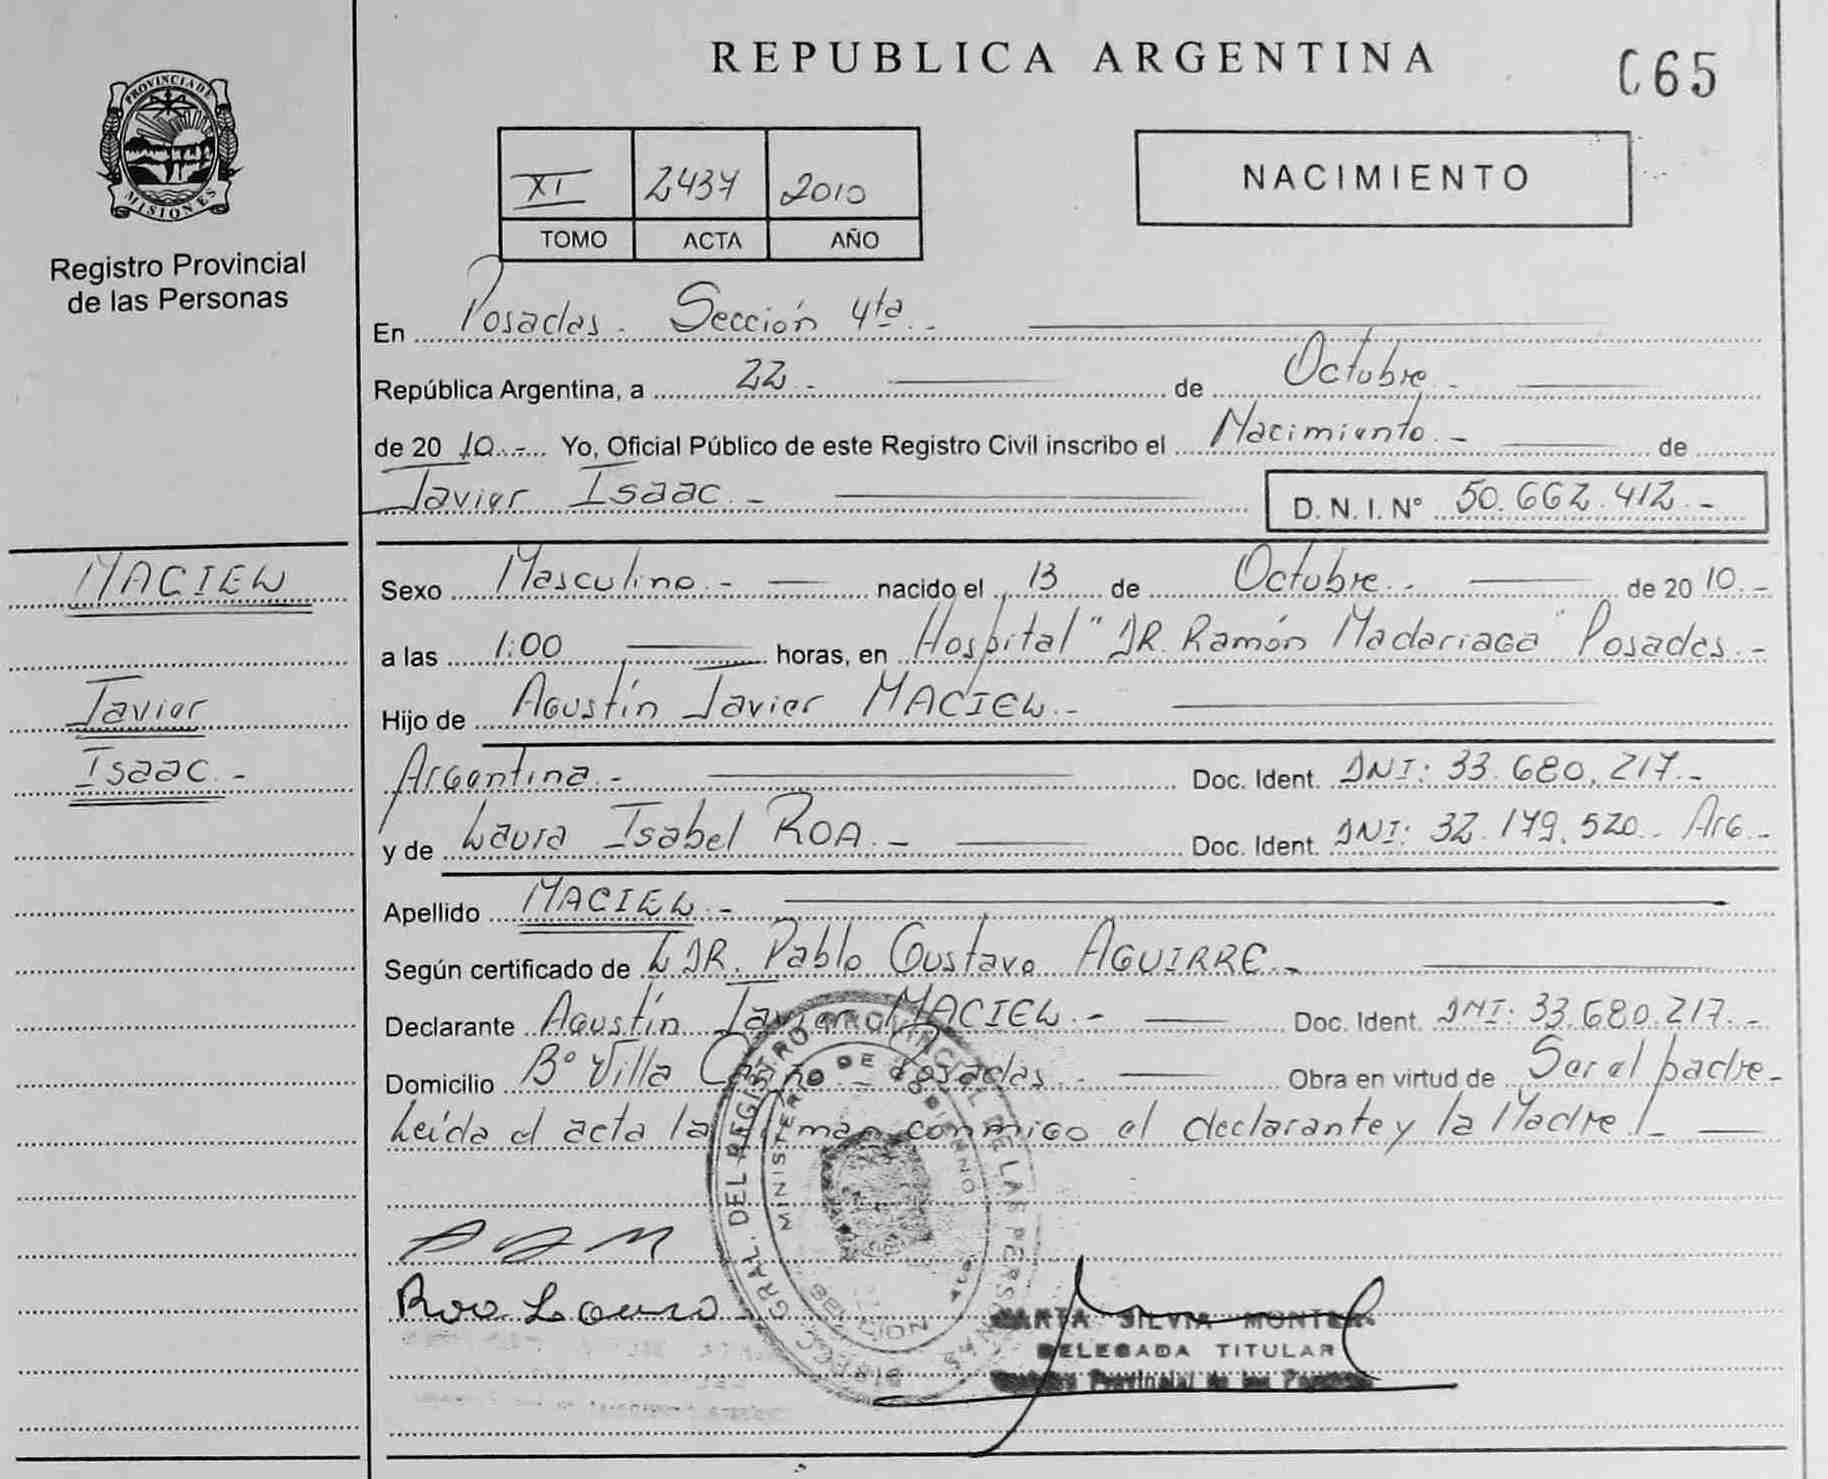 REPUBLICA ARGENTINA
065
PROVINCIA DE
MISIONES
Registro Provincial
de las Personas
XI 2437 2010
TOMO ACTA AÑO
NACIMIENTO
En Posadas. Sección 4ta.-
República Argentina, a 22.- de Octubre.-
de 20 10.- Yo, Oficial Público de este Registro Civil inscribo el Nacimiento.- de
Javier Isaac.- D. N. I. Nº 50.662.412.-
MACIEL
Javier
Isaac.-
Sexo Masculino.- nacido el 13 de Octubre.- de 20 10.-
a las 1:00 horas, en Hospital "DR. Ramón Madariaga" Posadas.-
Hijo de Agustín Javier MACIEL.-
Argentina.- Doc. Ident. DNI: 33.680.217.-
y de Laura Isabel ROA.- Doc. Ident. DNI: 32.179.520.- Arg.-
Apellido MACIEL.-
Según certificado de L DR. Pablo Gustavo AGUIRRE.-
Declarante Agustín Javier MACIEL.- Doc. Ident. DNI: 33.680.217.-
Domicilio Bº Villa Posadas.- Obra en virtud de Ser el padre.-
Leída el acta la firman conmigo el declarante y la Madre.-
GRAL. DEL REGISTRO PROVINCIAL DE LAS PERSONAS
MINISTERIO DE GOBIERNO
A J M
Roa Laura
MARTA SILVIA
DELEGADA TITULAR
Registro Provincial de las Personas